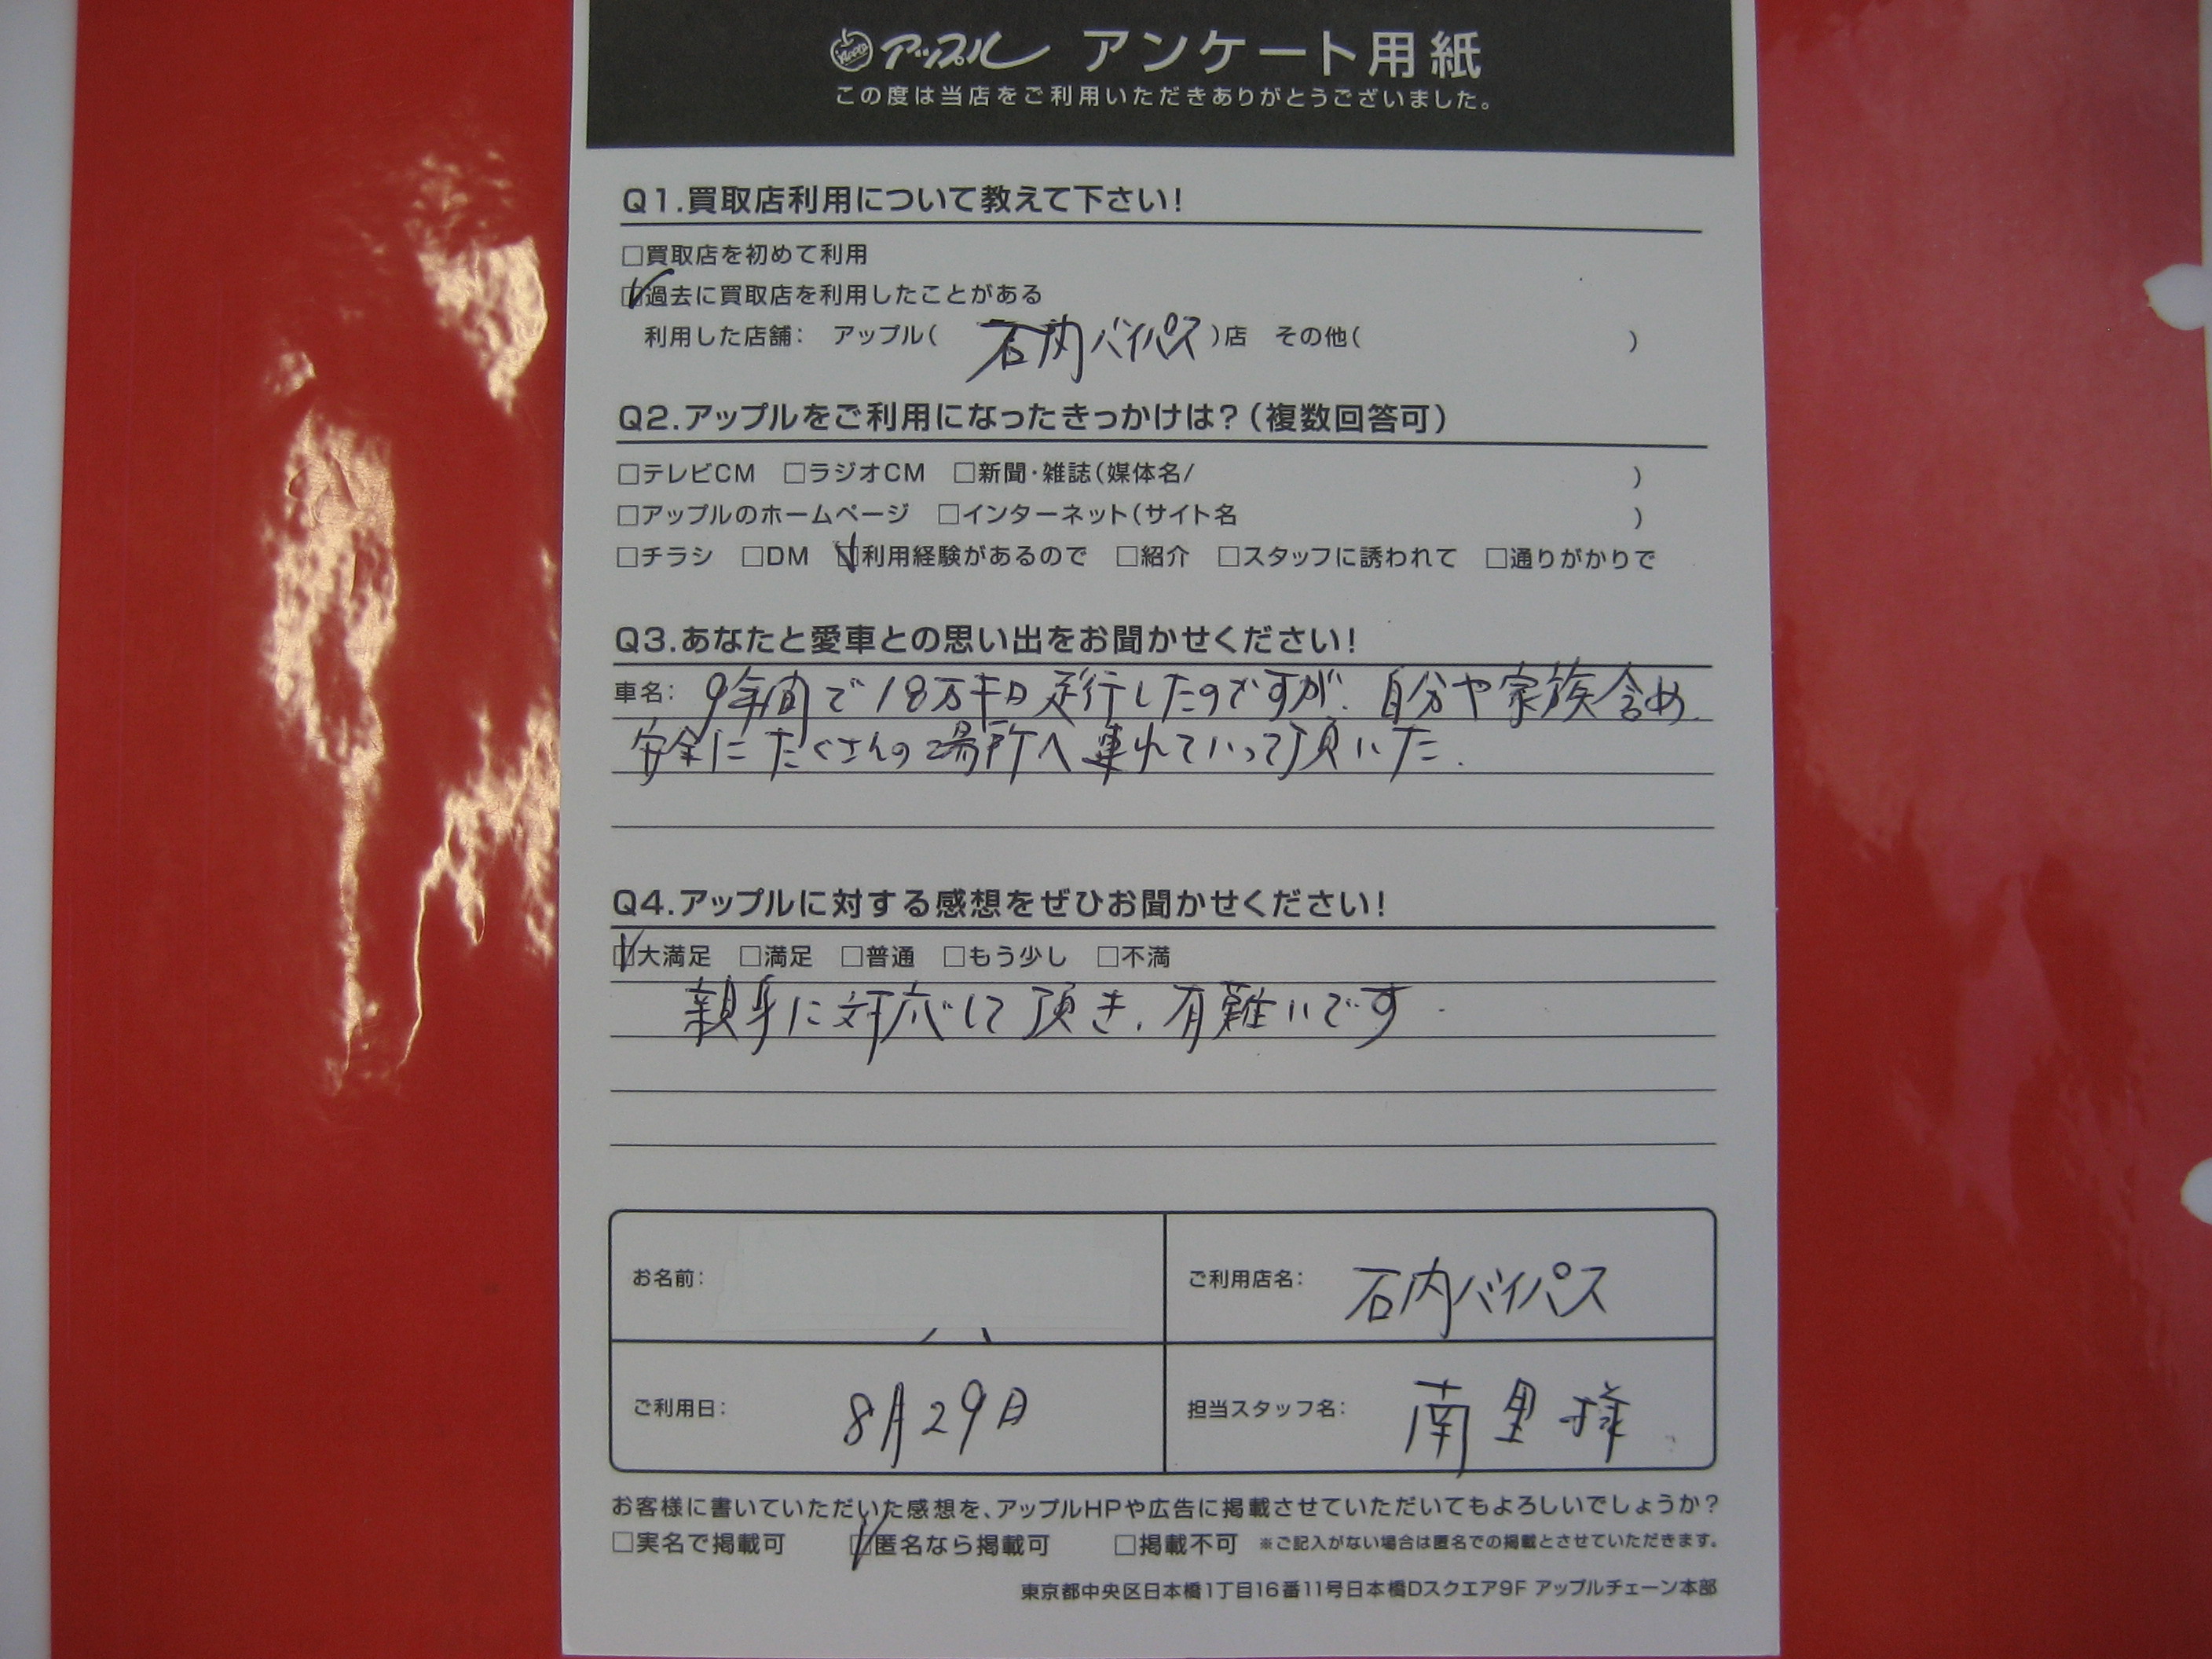 アップル アンケート用紙
この度は当店をご利用いただきありがとうございました。
Q1.買取店利用について教えて下さい!
□買取店を初めて利用
☑過去に買取店を利用したことがある
利用した店舗: アップル( 石内バイパス )店 その他( )
Q2.アップルをご利用になったきっかけは?(複数回答可)
□テレビCM □ラジオCM □新聞・雑誌(媒体名/ )
□アップルのホームページ □インターネット(サイト名 )
□チラシ □DM ☑利用経験があるので □紹介 □スタッフに誘われて □通りがかりで
Q3.あなたと愛車との思い出をお聞かせください!
車名: 9年間で18万キロ走行したのですが、自分や家族含め、
安全にたくさんの場所へ連れていって頂いた.
Q4.アップルに対する感想をぜひお聞かせください!
☑大満足 □満足 □普通 □もう少し □不満
親身に対応して頂き、有難いです.
お名前:
ご利用店名: 石内バイパス
ご利用日: 8月29日
担当スタッフ名: 南里様
お客様に書いていただいた感想を、アップルHPや広告に掲載させていただいてもよろしいでしょうか?
□実名で掲載可 ☑匿名なら掲載可 □掲載不可 ※ご記入がない場合は匿名での掲載とさせていただきます。
東京都中央区日本橋1丁目16番11号日本橋Dスクエア9F アップルチェーン本部